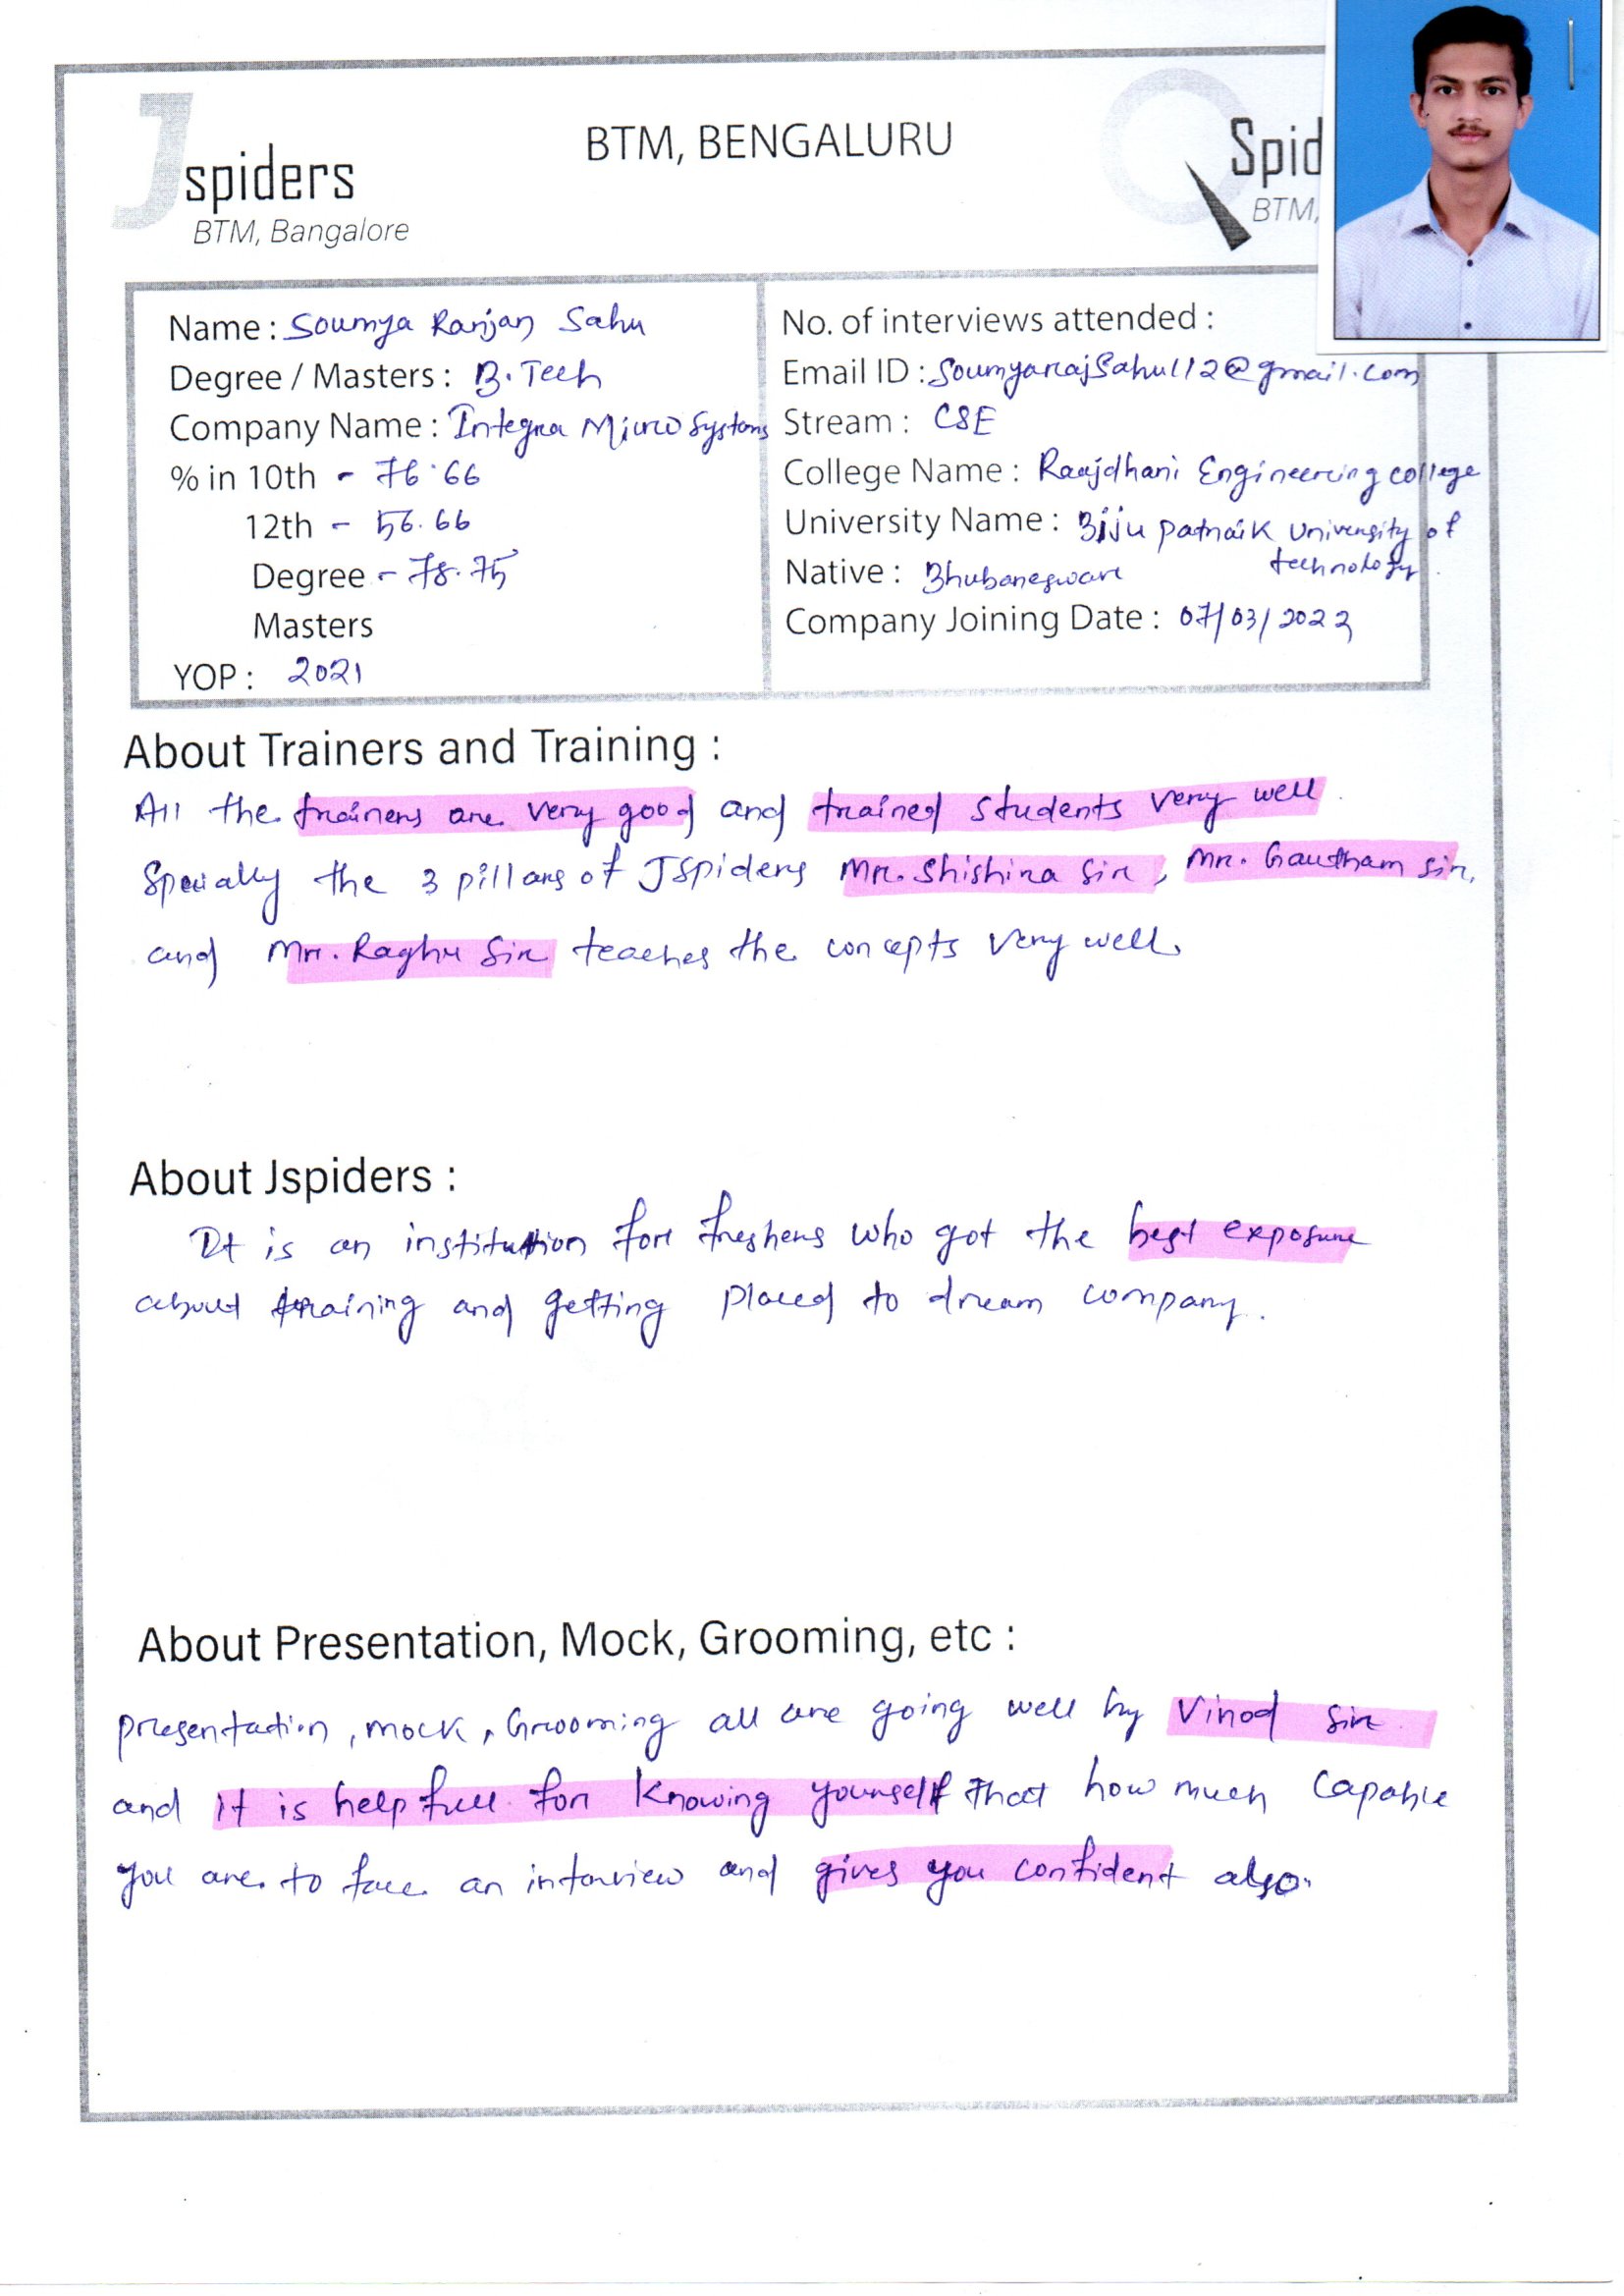 BTM, BENGALURU
Jspiders
BTM, Bangalore
Spid
BTM,
Name : Soumya Ranjan Sahu
Degree / Masters : B.Tech
Company Name : Integra Micro Systems
% in 10th - 76.66
12th - 56.66
Degree - 78.75
Masters
YOP : 2021
No. of interviews attended :
Email ID : Soumyarajsahu112@gmail.com
Stream : CSE
College Name : Raajdhani Engineering college
University Name : Biju patnaik University of
technology.
Native : Bhubaneswar
Company Joining Date : 07/03/2022
About Trainers and Training :
All the trainers are very good and trained students very well.
Specially the 3 pillars of JSpiders Mr. Shishira Sir, Mr. Gautham Sir,
and Mr. Raghu Sir teaches the concepts very well.
About Jspiders :
It is an institution for freshers who got the best exposure
about training and getting placed to dream company.
About Presentation, Mock, Grooming, etc :
presentation, mock, Grooming all are going well by Vinod Sir
and it is helpfull for knowing yourself that how much capable
you are to face an interview and gives you confident also.